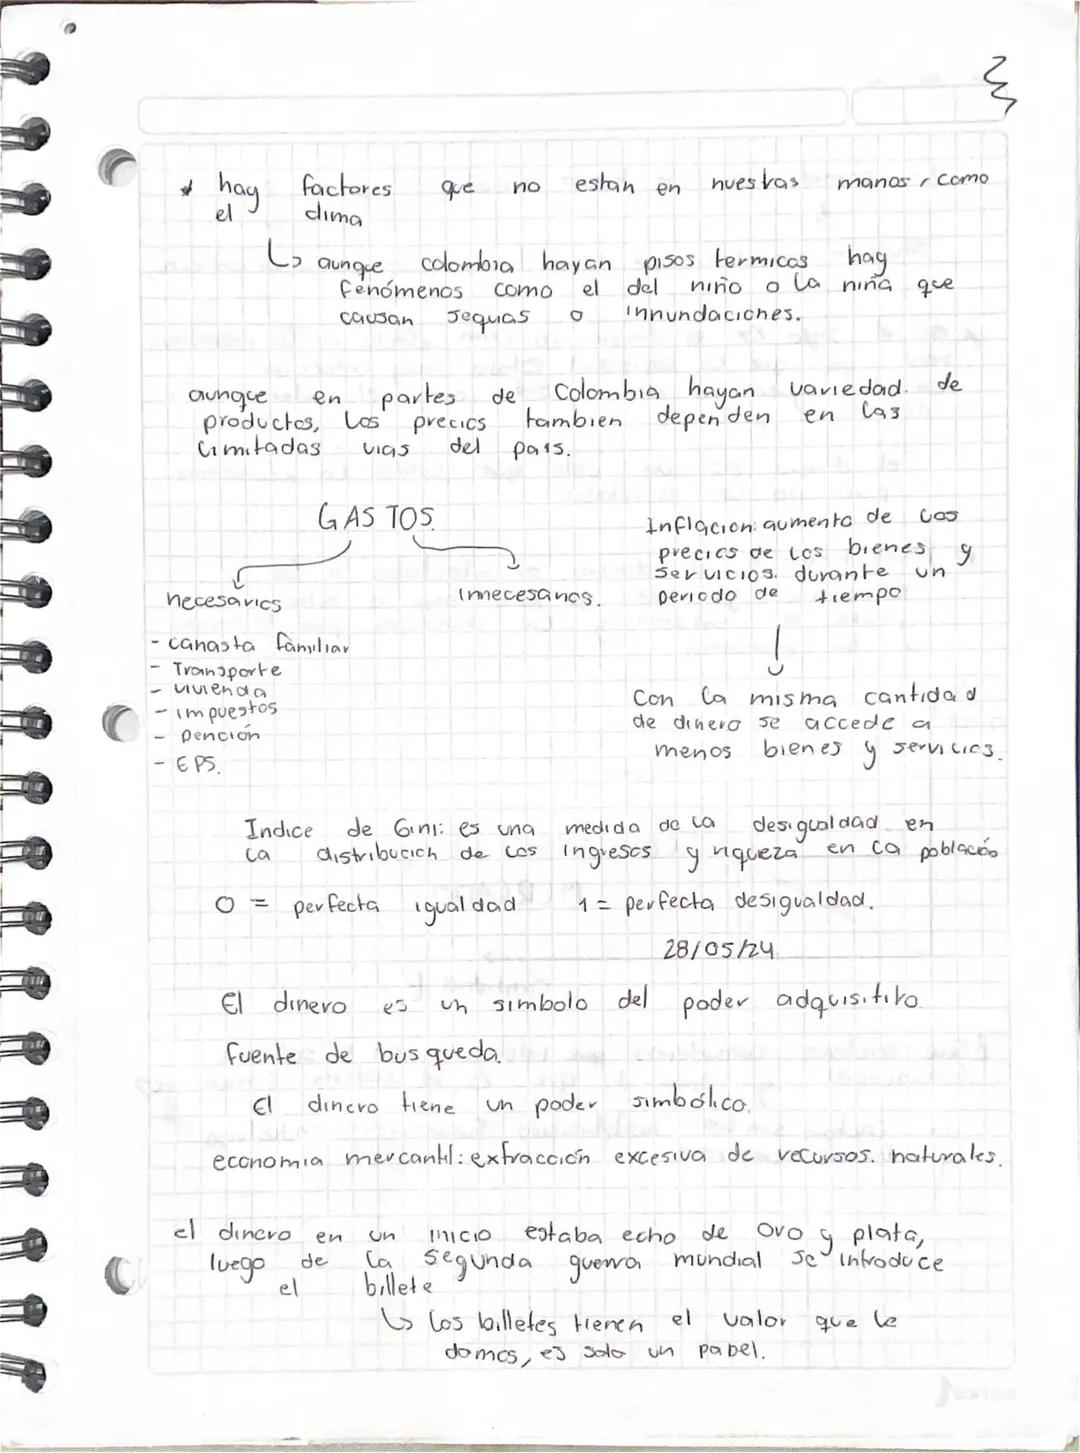 * hay factores que no estan en nuestras manos, como
el clima
↳ aunque colombia hayan pisos termicos hay
fenómenos como el del niño o la niña que
causan sequas o innundaciones.
aunque en partes de Colombia hayan variedad de
productos, los precios tambien dependen en las
limitadas vias del pais.
GASTOS
necesarios
innecesarios.
- canasta familiar
- Transporte
- vivienda
- impuestos
- pención
- EPS.
Inflacion: aumento de los
precios de los bienes y
servicios. durante un
periodo de tiempo
↓
Con la misma cantidad
de dinero se accede a
menos bienes y servicios.
Indice de Gini: es una medida de la desigualdad en
la distribucion de los ingresos y riqueza en la población
0 = perfecta igualdad 1 = perfecta desigualdad.
28/05/24
El dinero es un simbolo del poder adquisitivo
fuente de busqueda.
El dinero tiene un poder simbólico.
economia mercantil: extracción excesiva de recursos. naturales.
el dinero en un inicio estaba echo de oro y plata,
luego de la segunda guerra mundial se introduce
el billete
↳ los billetes tienen el valor que le
damos, es solo un papel.